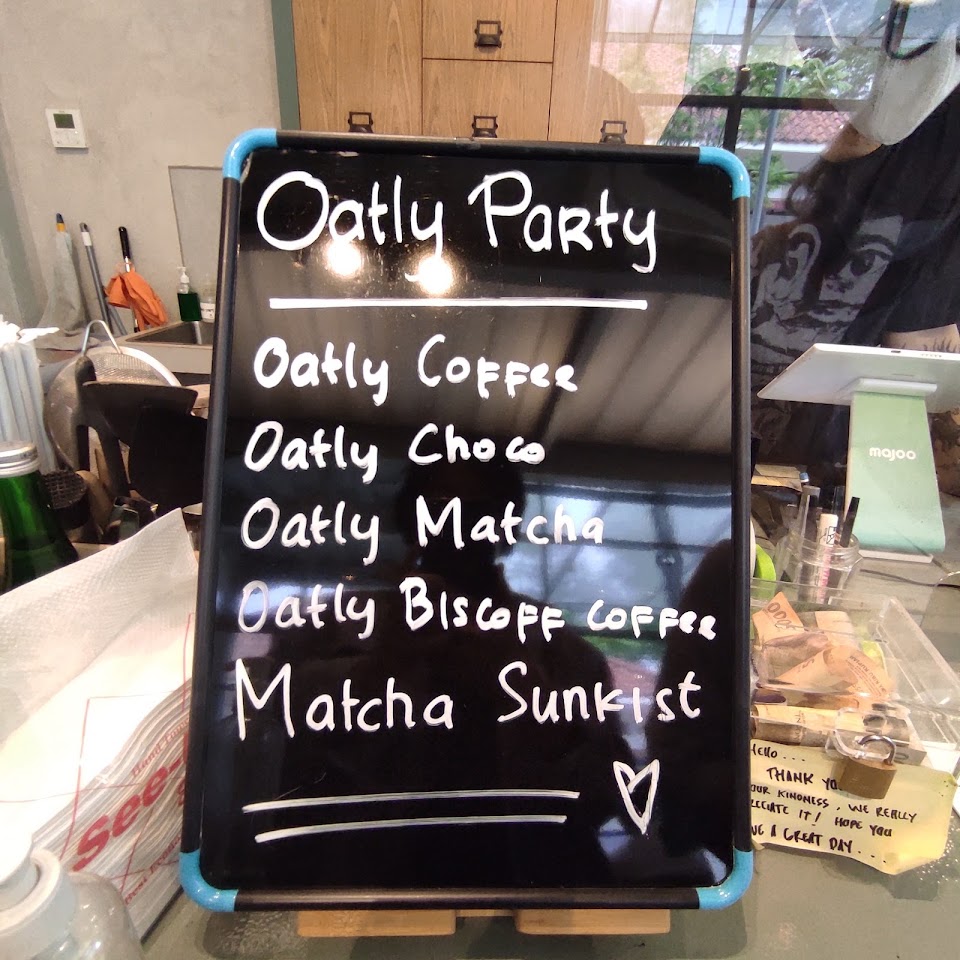 Oatly Party
Oatly Coffee
Oatly Choco
Oatly Matcha
Oatly Biscoff coffee
Matcha Sunkist
majoo
Hello....
THANK
OUR KINDNESS, WE REALLY
IT! HOPE YOU
A GREAT DAY....
see-